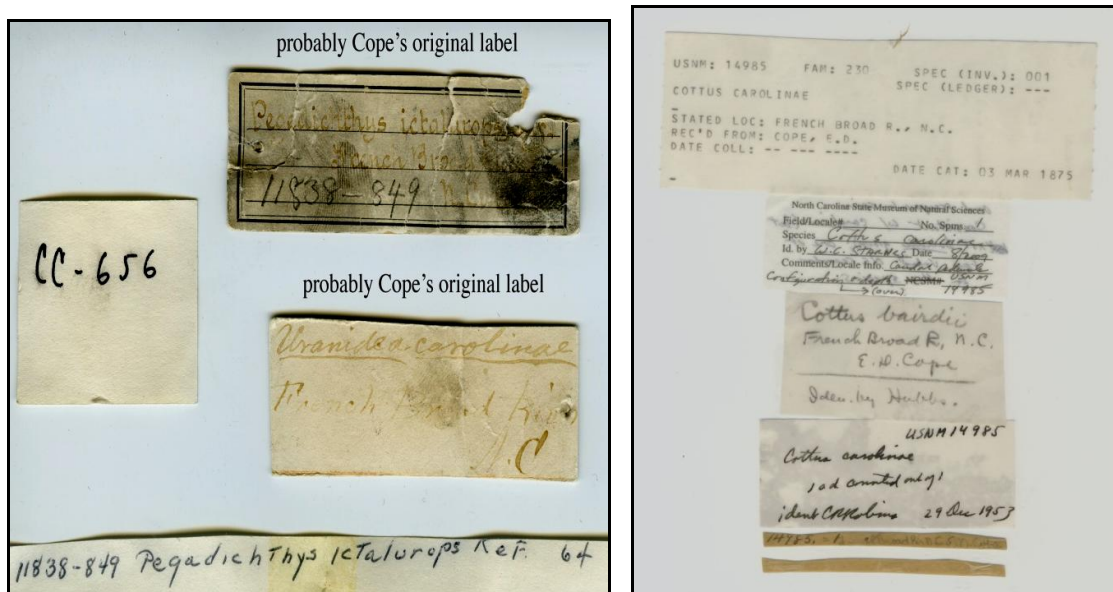 probably Cope's original label
Pegedichthys ictalurops
French Broad
11838-849
CC-656
probably Cope's original label
Uranidea carolinae
French Broad River
N.C
11838-849 Pegadichthys Ictalurops Ref. 64
USNM: 14985 FAM: 230 SPEC (INV.): 001
SPEC (LEDGER): ---
COTTUS CAROLINAE
STATED LOC: FRENCH BROAD R., N.C.
REC'D FROM: COPE, E.D.
DATE COLL: -- --- ----
DATE CAT: 03 MAR 1875
North Carolina State Museum of Natural Sciences
Field/Locale# No. Spms 1
Species Cottus carolinae
Id. by W.C. Starnes Date 8/2009
Comments/Locale Info. Caudal
USNM
Configuration + depth NCSM#
(over) 14985
Cottus bairdii
French Broad R, N.C.
E.D. Cope
Iden. by Hubbs.
USNM 14985
Cottus carolinae
1 ad counted out of 1
ident CRRobins 29 Dec 1953
14985.